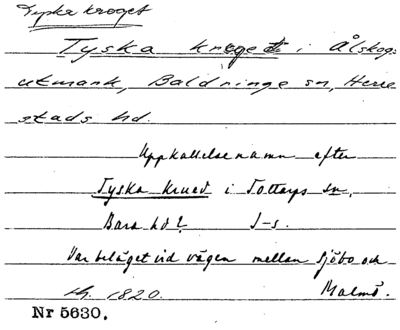 Tyska kroget
Tyska kroget i Ålskog
utmark, Baldringe sn, Herre
stads hd.
Uppkallelsenamn efter
Tyska krued i Tottarps sn,
Bara hd? J-s.
Var beläget vid vägen mellan Sjöbo och
th. 1820. Malmö.
Nr 5630.